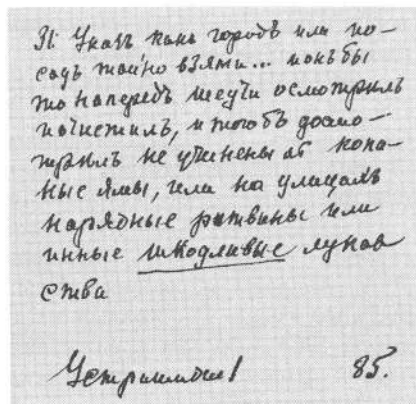 Указъ какъ городъ или по-
садъ тайно взяти... какъ бы
то напередъ шедчи осмотрилъ
и очистилъ, и того бъ досмо-
трилъ не учинены ль копа-
ные ямы, или на улицахъ
нарядные рытвины или
инные шкодливые лукав
ства
85.